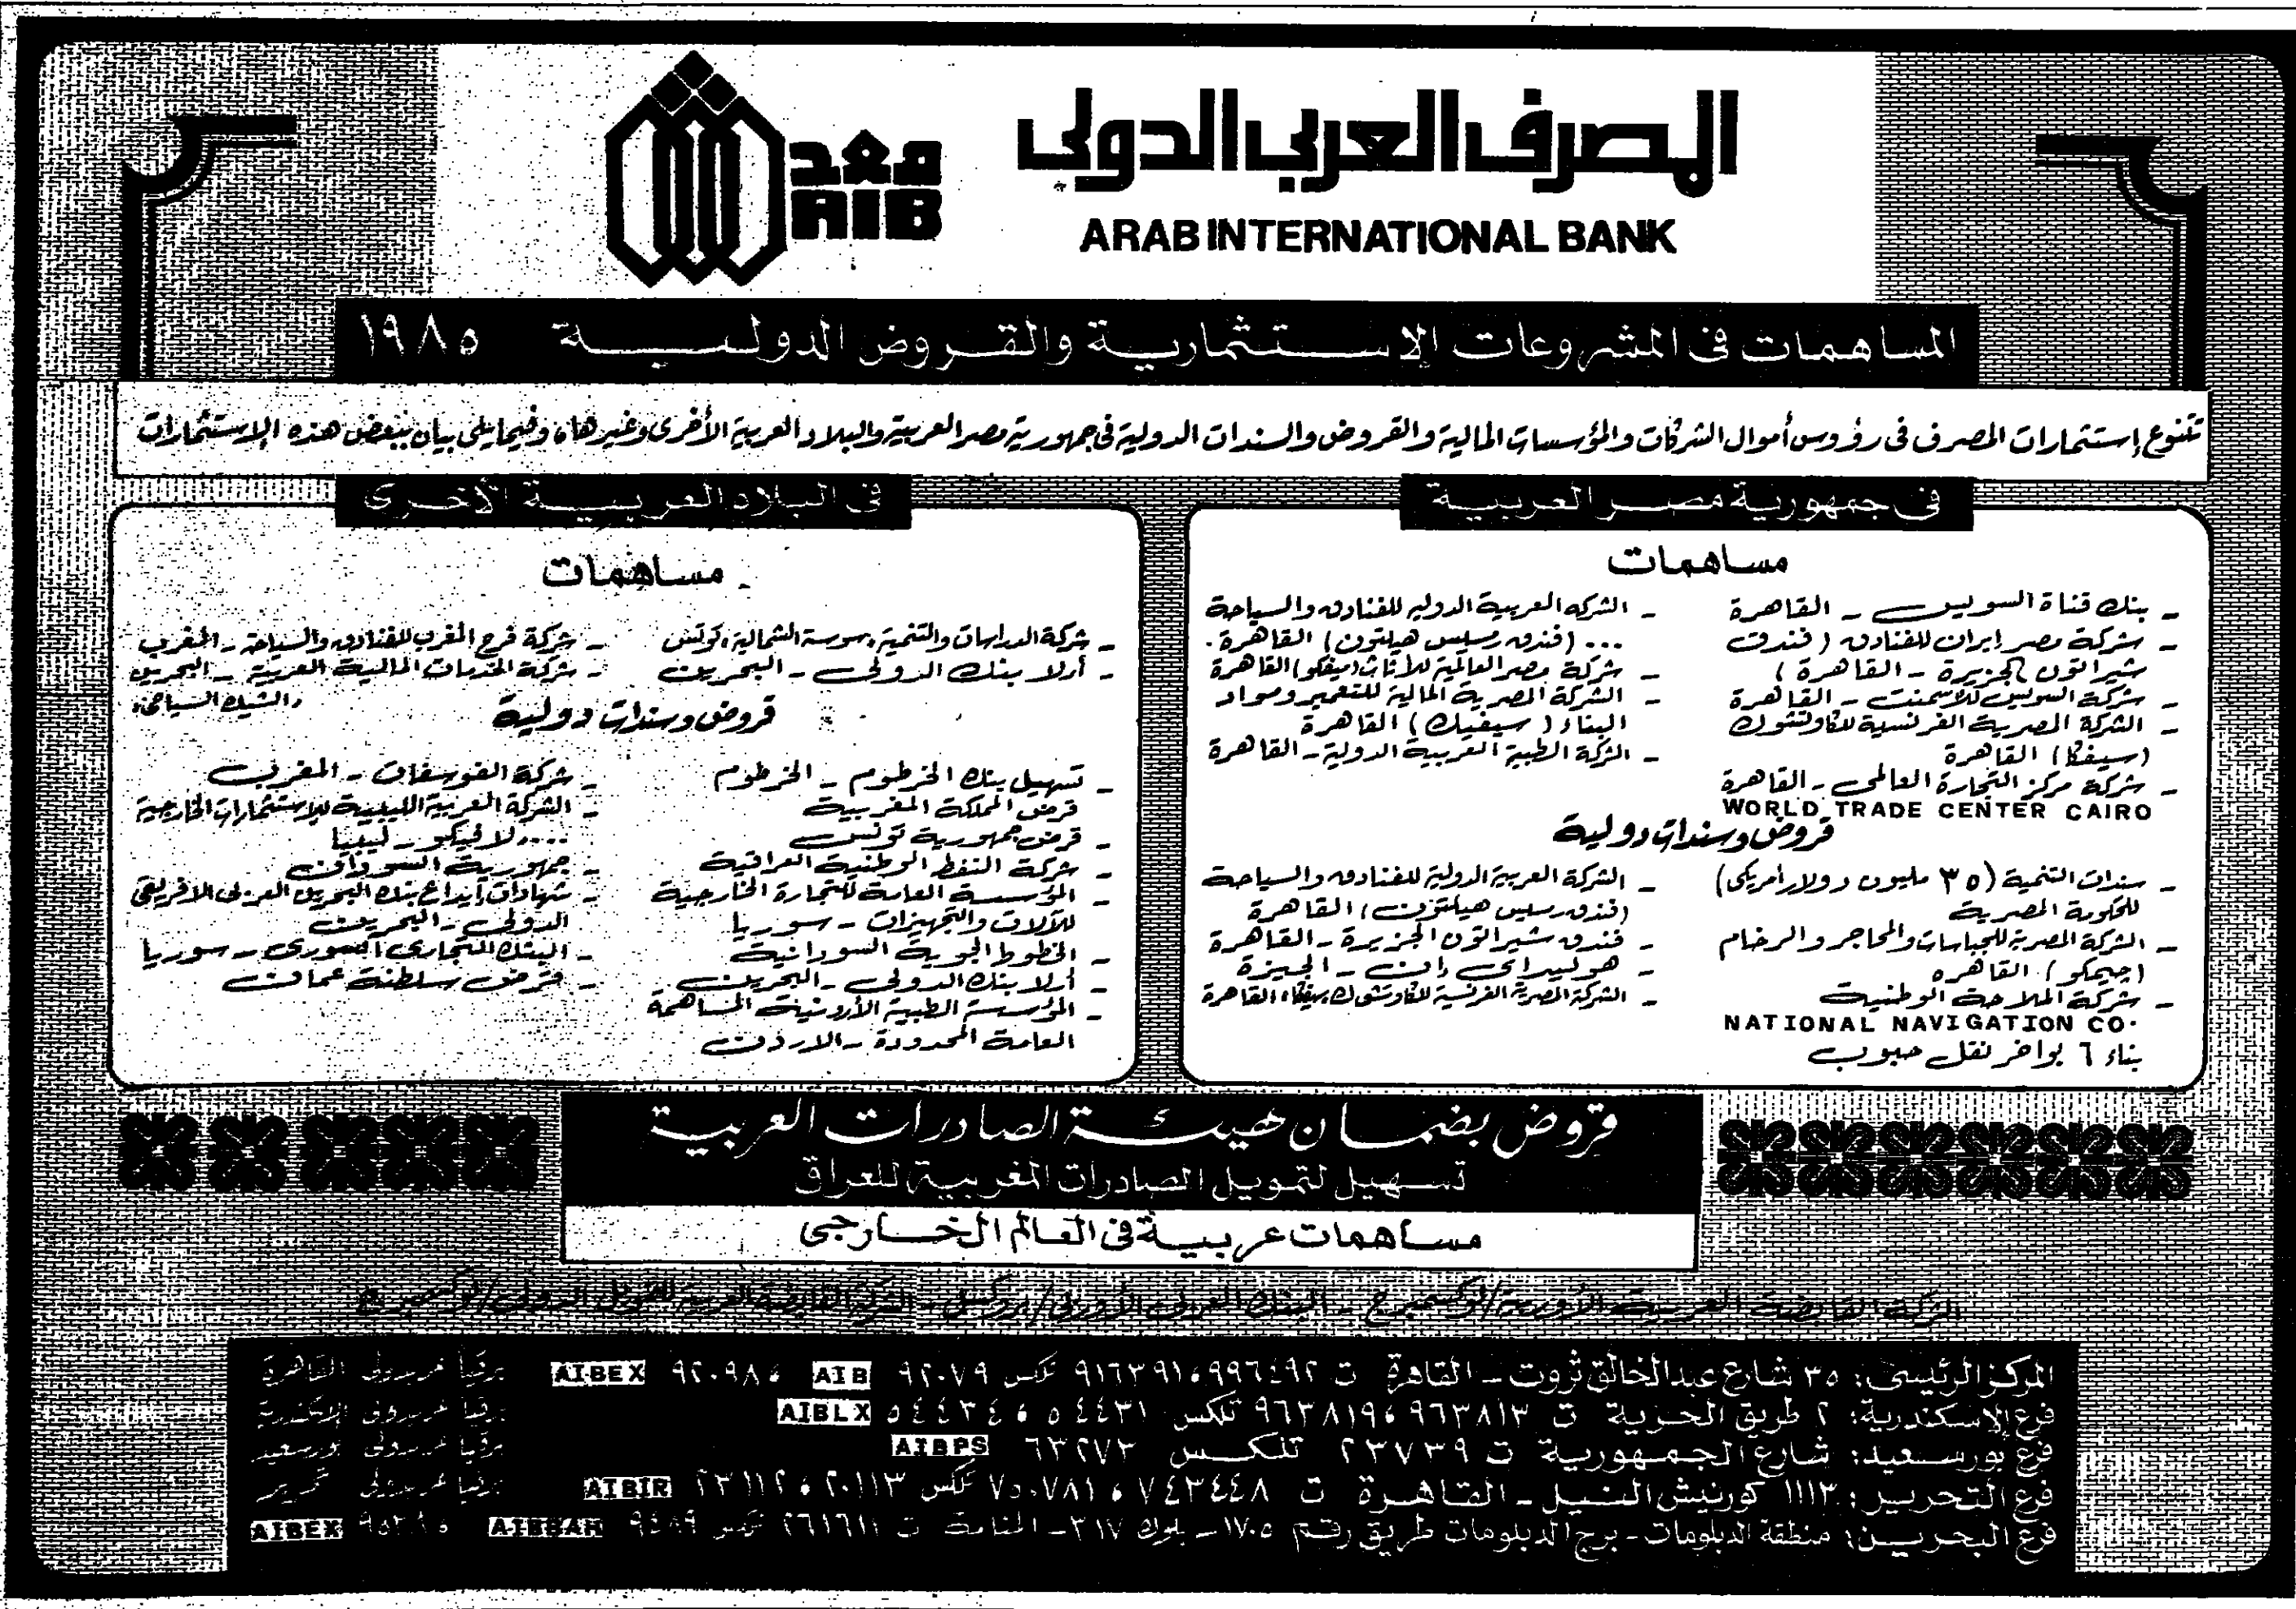 المصرف العربى الدولى
معد
AIB
ARAB INTERNATIONAL BANK
المساهمات فى المشروعات الإستثمارية والقروض الدولية ١٩٨٥
تتنوع إستثمارات المصرف فى رؤوس أموال الشركات والمؤسسات المالية والقروض والسندات الدولية فى جمهورية مصر العربية والبلاد العربية الأخرى وغيرها، وفيما يلى بيان ببعض هذه الإستثمارات
فى جمهورية مصر العربية
مساهمات
- بنك قناة السويس - القاهرة
- شركة مصر إيران للفنادق (فندق
شيراتون الجزيرة - القاهرة)
- شركة السويس للأسمنت - القاهرة
- الشركة المصرية الفرنسية للكاوتشوك
(سيفكا) القاهرة
- شركة مركز التجارة العالمى - القاهرة
WORLD TRADE CENTER CAIRO
- الشركه العربية الدولية للفنادق والسياحة
... (فندق رمسيس هيلتون) القاهرة.
- شركة مصر العالمية للأثاث (ميفكو) القاهرة
- الشركة المصرية المالية للتعمير ومواد
البناء (سيفيك) القاهرة
- الشركة الطبية العربية الدولية - القاهرة
قروض وسندات دولية
- سندات التنمية (٣٥ مليون دولار أمريكى)
للحكومة المصرية
- الشركة المصرية للجباسات والمحاجر والرخام
(جيمكو) القاهره
- شركة الملاحة الوطنية
NATIONAL NAVIGATION CO.
بناء ٦ بواخر نقل حبوب
- الشركة العربية الدولية للفنادق والسياحة
(فندق رمسيس هيلتون) القاهرة
- فندق شيراتون الجزيرة - القاهرة
- هوليداى إن - الجيزة
- الشركة المصرية الفرنسية للكاوتشوك سيفكا، القاهرة
فى البلاد العربية الأخرى
مساهمات
- شركة الدراسات والتنمية، سوسة الشمالية، تونس
- أرلا بنك الدولى - البحرين
- شركة فرح المغرب للفنادق والسياحة - المغرب
- شركة الخدمات المالية العربية - البحرين
، الشيك السياحى،
قروض وسندات دولية
- تسهيل بنك الخرطوم - الخرطوم
قرض المملكة المغربية
- قرض جمهورية تونس
- شركة النفط الوطنية العراقية
- المؤسسة العامة للتجارة الخارجية
للآلات والتجهيزات - سوريا
- الخطوط الجوية السودانية
- أرلا بنك الدولى - البحرين
- المؤسسة الطبية الأردنية المساهمة
العامة المحدودة - الاردن
- شركة الفوسفات - المغرب
- الشركة العربية الليبية للإستثمارات الخارجية
.... لافيكو - ليبيا
- جمهورية السودان
- شهادات إيداع بنك البحرين العربى الافريقى
الدولى - البحرين
- البنك التجارى السورى - سوريا
- قرض سلطنة عمان
قروض بضمان هيئة الصادرات العربية
تسهيل لتمويل الصادرات المغربية للعراق
مساهمات عربية فى العالم الخارجى
الشركة القابضة العربية الأوربية / لوكسمبرج - البنك العربى الأوربى / بروكسل - الشركة القابضة العربية للتمويل الدولى / لوكسمبرج
المركز الرئيسى: ٣٥ شارع عبد الخالق ثروت - القاهرة ت ٩١٦٣٩١،٩٩٦٤٩٢ تلكس ٩٢٠٧٩ AIB ، ٩٢٠٩٨ AIBEX برقيا عربدولى القاهرة
فرع الإسكندرية: ٢ طريق الحرية ت ٩٦٣٨١٩،٩٦٣٨١٣ تلكس ٥٤٤٣١ ، ٥٤٤٣٤ AIBLX برقيا عربدولى الاسكندرية
فرع بورسعيد: شارع الجمهورية ت ٢٣٧٣٩ تلكس ٦٣٢٧٣ AIBPS برقيا عربدولى بورسعيد
فرع التحرير: ١١١٣ كورنيش النيل - القاهرة ت ٧٤٣٤٤٨ ، ٧٥٠٧٨١ تلكس ٢٠١١٣ ، ٢٣١١٢ AIBIR برقيا عربدولى تحرير
فرع البحرين: منطقة الدبلومات - برج الدبلومات طريق رقم ١٧٠٥ - بلوك ٣١٧ - المنامة ت ٢٦١٦١١ تلكس ٩٤٨٩ AIBBAH ، AIBEX